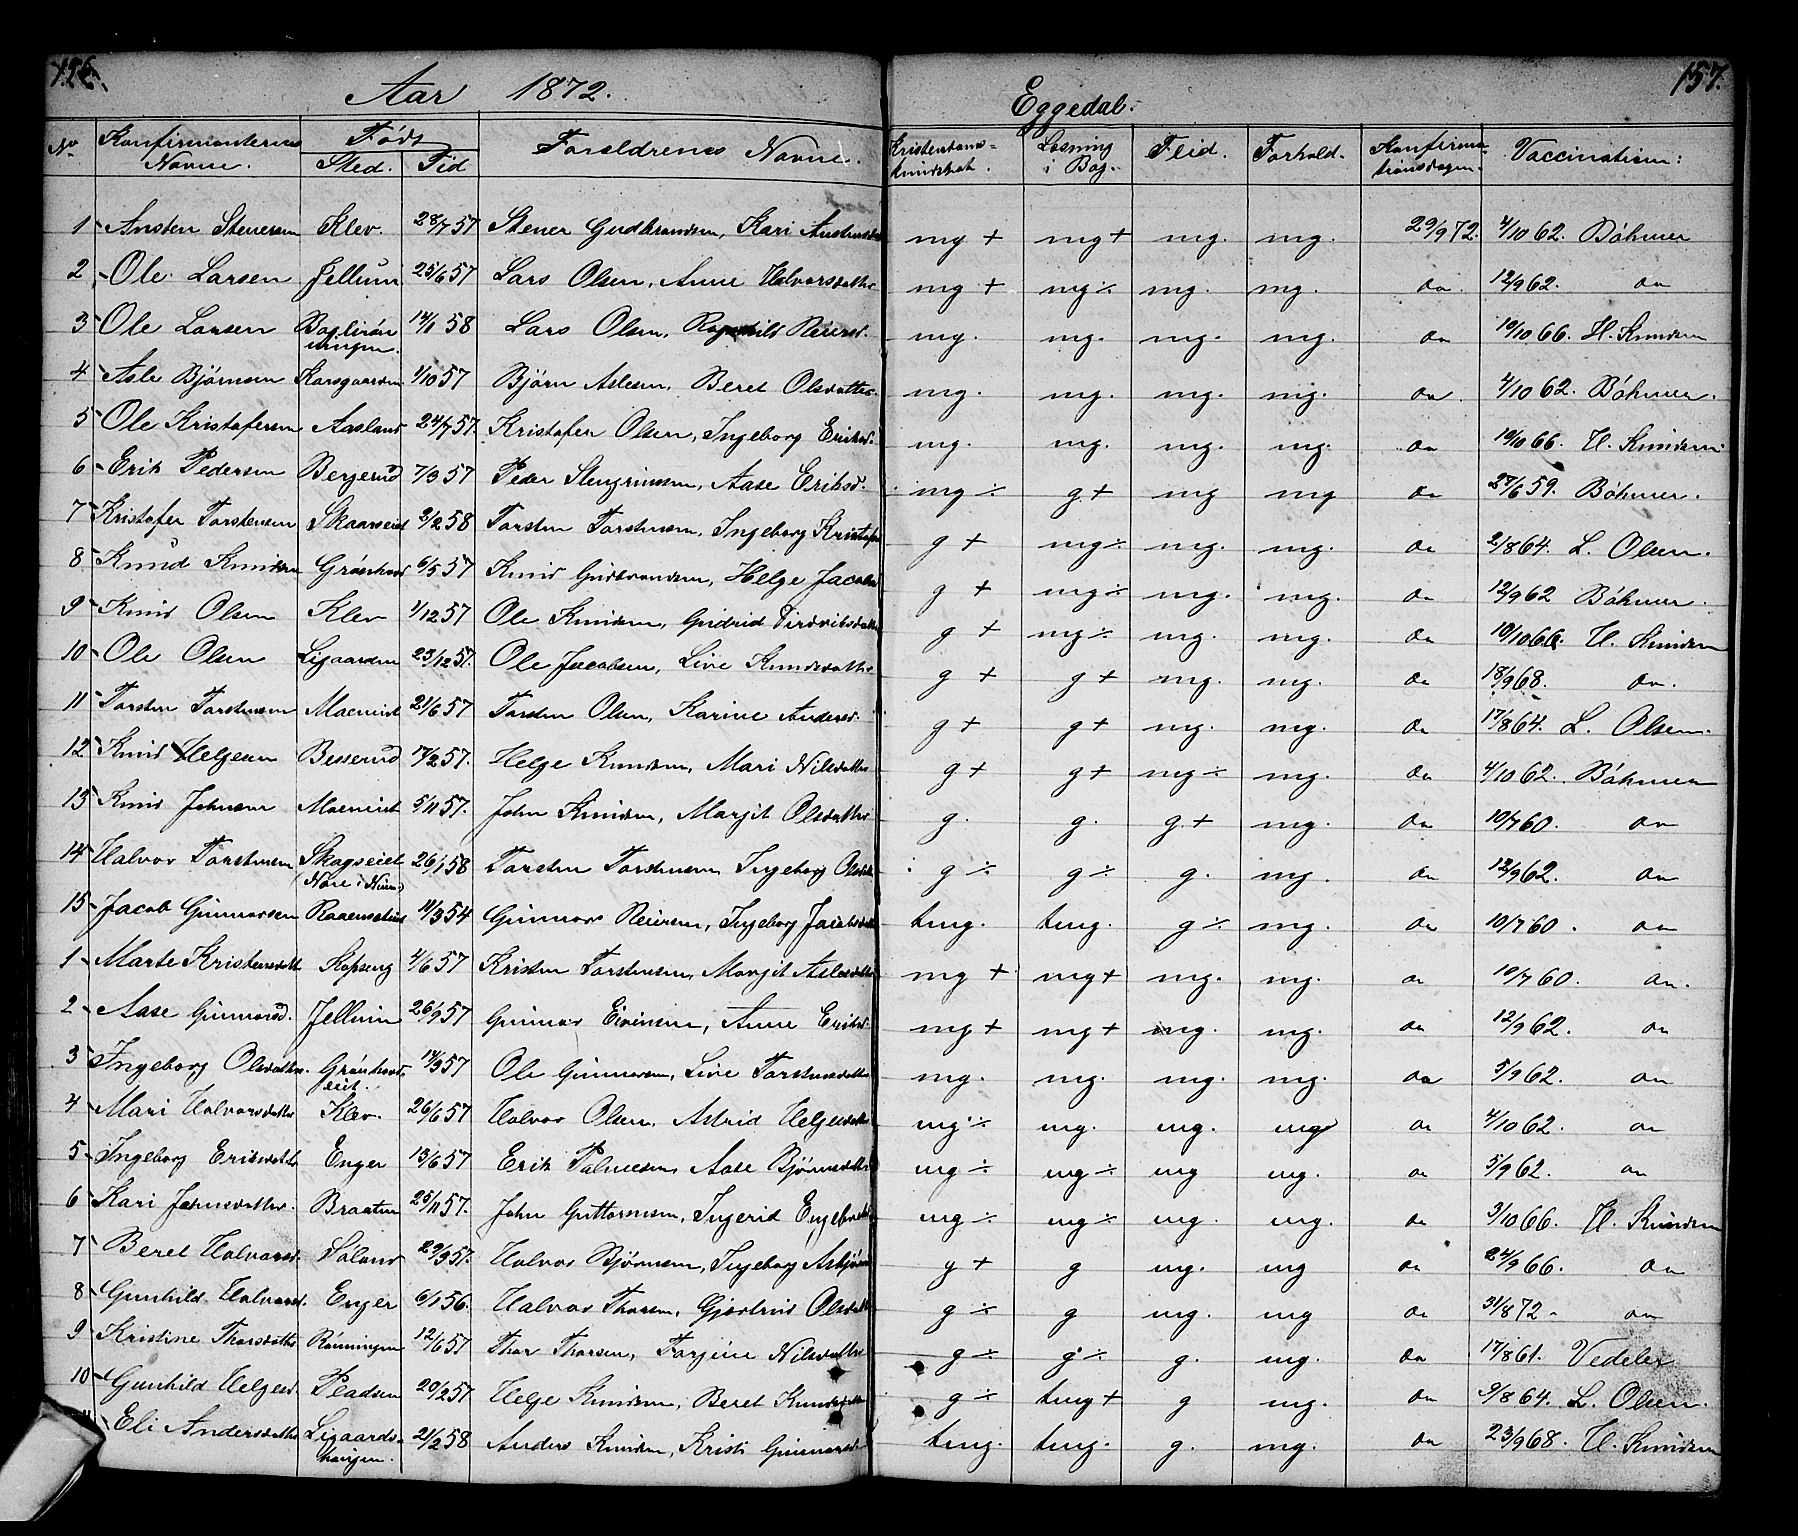 156.
Aar 1872.
Eggedal.
157.
No Konfirmanternes Navne. Født Sted. Tid Foreldrenes Navne. Kristendoms-kundskab. Læsning i Bog. Flid. Forhold. Konfirma-tionsdagen. Vaccination:
1 Ansten Stenersen Klev. 28/7 57 Stener Gudbrandsen, Kari mg + mg + mg. mg. 29/9 72. 4/10 62. Böhmer
2 Ole Larsen Jellum 25/6 57 Lars Olsen, Anne Halvorsdatter mg + mg ÷ mg. mg. do. 12/9 62. do
3 Ole Larsen 14/1 58 Lars Olsen, Ragnhild Reiersd. mg. mg. mg. mg. do 10/10 66. H. Knudsen
4 Asle Bjørnsen Karsgaarden 1/10 57 Bjørn Aslesen, Beret Olsdatter. mg. mg. mg. mg. do. 4/10 62. Böhmer.
5 Ole Kristofersen Aasland 24/7 57. Kristofer Olsen, Ingeborg Eriksd. mg. mg. mg. mg. do 10/10 66. H. Knudsen
6 Erik Pedersen Bergerud 7/3 57 Peder Stengrimsen, Aase Eriksd. mg ÷ g + mg mg do 27/6 59. Böhmer.
7 Kristofer Torstensen Skaarseiet 2/2 58 Torsten Torstensen, Ingeborg g + mg ÷ mg. mg. do 2/8 64. L. Olsen.
8 Knud Knudsen Grønhovd 6/5 57 Knud Gudbrandsen, Helge g + mg ÷ mg. mg. do 12/9 62 Böhmer.
9 Knud Olsen Klev 1/12 57 Ole Knudsen, Gudrid g + mg ÷ mg. mg. do 10/10 66 H. Knudsen
10 Ole Olsen Ligaarden 23/12 57. Ole Jacobsen, Live Knudsdatter g + g + mg. mg. do 18/9 68. do.
11 Torsten Torstensen Moeneiet 21/6 57 Torsten Olsen, Karine Andersd. g + g + mg. mg. do 17/8 64. L. Olsen.
12 Knud Helgesen Besserud 17/2 57. Helge Knudsen, Mari Nilsdatter g + g + mg ÷ mg. do 4/10 62. Böhmer
13 Knud Johnsen Moeneiet 5/11 57. John Knudsen, Margit Olsdatter g. g. g. + mg. do 10/7 60. do
14 Halvor Torstensen Skagseiet (Nore i Num.) 26/1 58 Torsten Torstensen Ingeborg g ÷ g ÷ g. mg. do 12/9 62. do
15 Jacob Gunnarsen 11/3 54 Gunnar Reiersen, Ingeborg tmg. tmg. g ÷ mg. do 10/7 60. do
1 Marte Kristensdatter Kopseng 4/6 57 Kristen Torstensen, Margit Aslesdatter mg + mg + mg. mg. do 10/7 60. do.
2 Aase Gunnarsd. Jellum 26/9 57 Gunnar Evensen, Anne Eriksd. mg + mg + mg. mg. do 12/9 62. do
3 Ingeborg Olsdatter. Grønhovd-eiet. 14/3 57 Ole Gunnarsen, Live Torstensdatter mg. mg. mg. mg. do 5/9 62. do
4 Mari Halvorsdatter Klev. 26/6 57 Halvor Olsen, Astrid Helgesdatter mg ÷ mg. mg. mg do 4/10 62. do
5 Ingeborg Eriksdatter Enger 13/6 57 Erik Palmesen, Aase Bjørnsdatter mg ÷ mg ÷ mg mg. do 5/9 62. do
6 Kari Johnsdatter. Braaten 25/11 57. John Guttormsen, Ingerid mg ÷ mg ÷ mg. mg. do 3/10 66. H. Knudsen
7 Beret Halvorsd. Søland 29/3 57. Halvor Bjørnsen, Ingeborg g + g mg. mg do 24/9 66. do
8 Gunhild Halvorsd. Enger 6/1 56. Halvor Thorsen, Gjertrud Olsdatter g ÷ g mg. mg do 31/8 72. do
9 Kristine Thorsdatter Rønningen 12/6 57 Thor Thorsen, Torjine Nilsdatter g ÷ g ÷ g. mg. do 17/8 61. Vedeler
10 Gunhild Helgesd. Pladsen 20/2 57. Helge Knudsen, Beret Knudsdatter g ÷ tmg + g mg. do 9/8 64. L. Olsen.
11 Eli Andersdatter Ligaards-haugen. 21/2 58 Anders Knudsen, Kristi Gunnarsd. tmg. tmg. g. mg. do 23/9 68. H. Knudsen